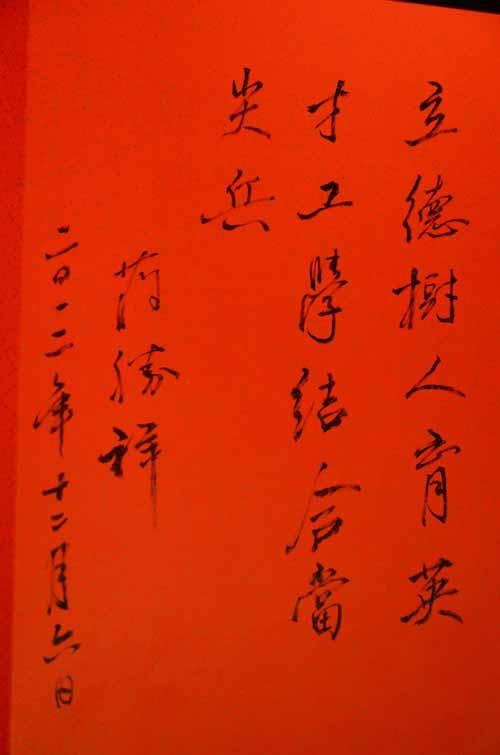 立德樹人育英
才工學結合當
尖兵
勝祥
二〇一二年十二月六日